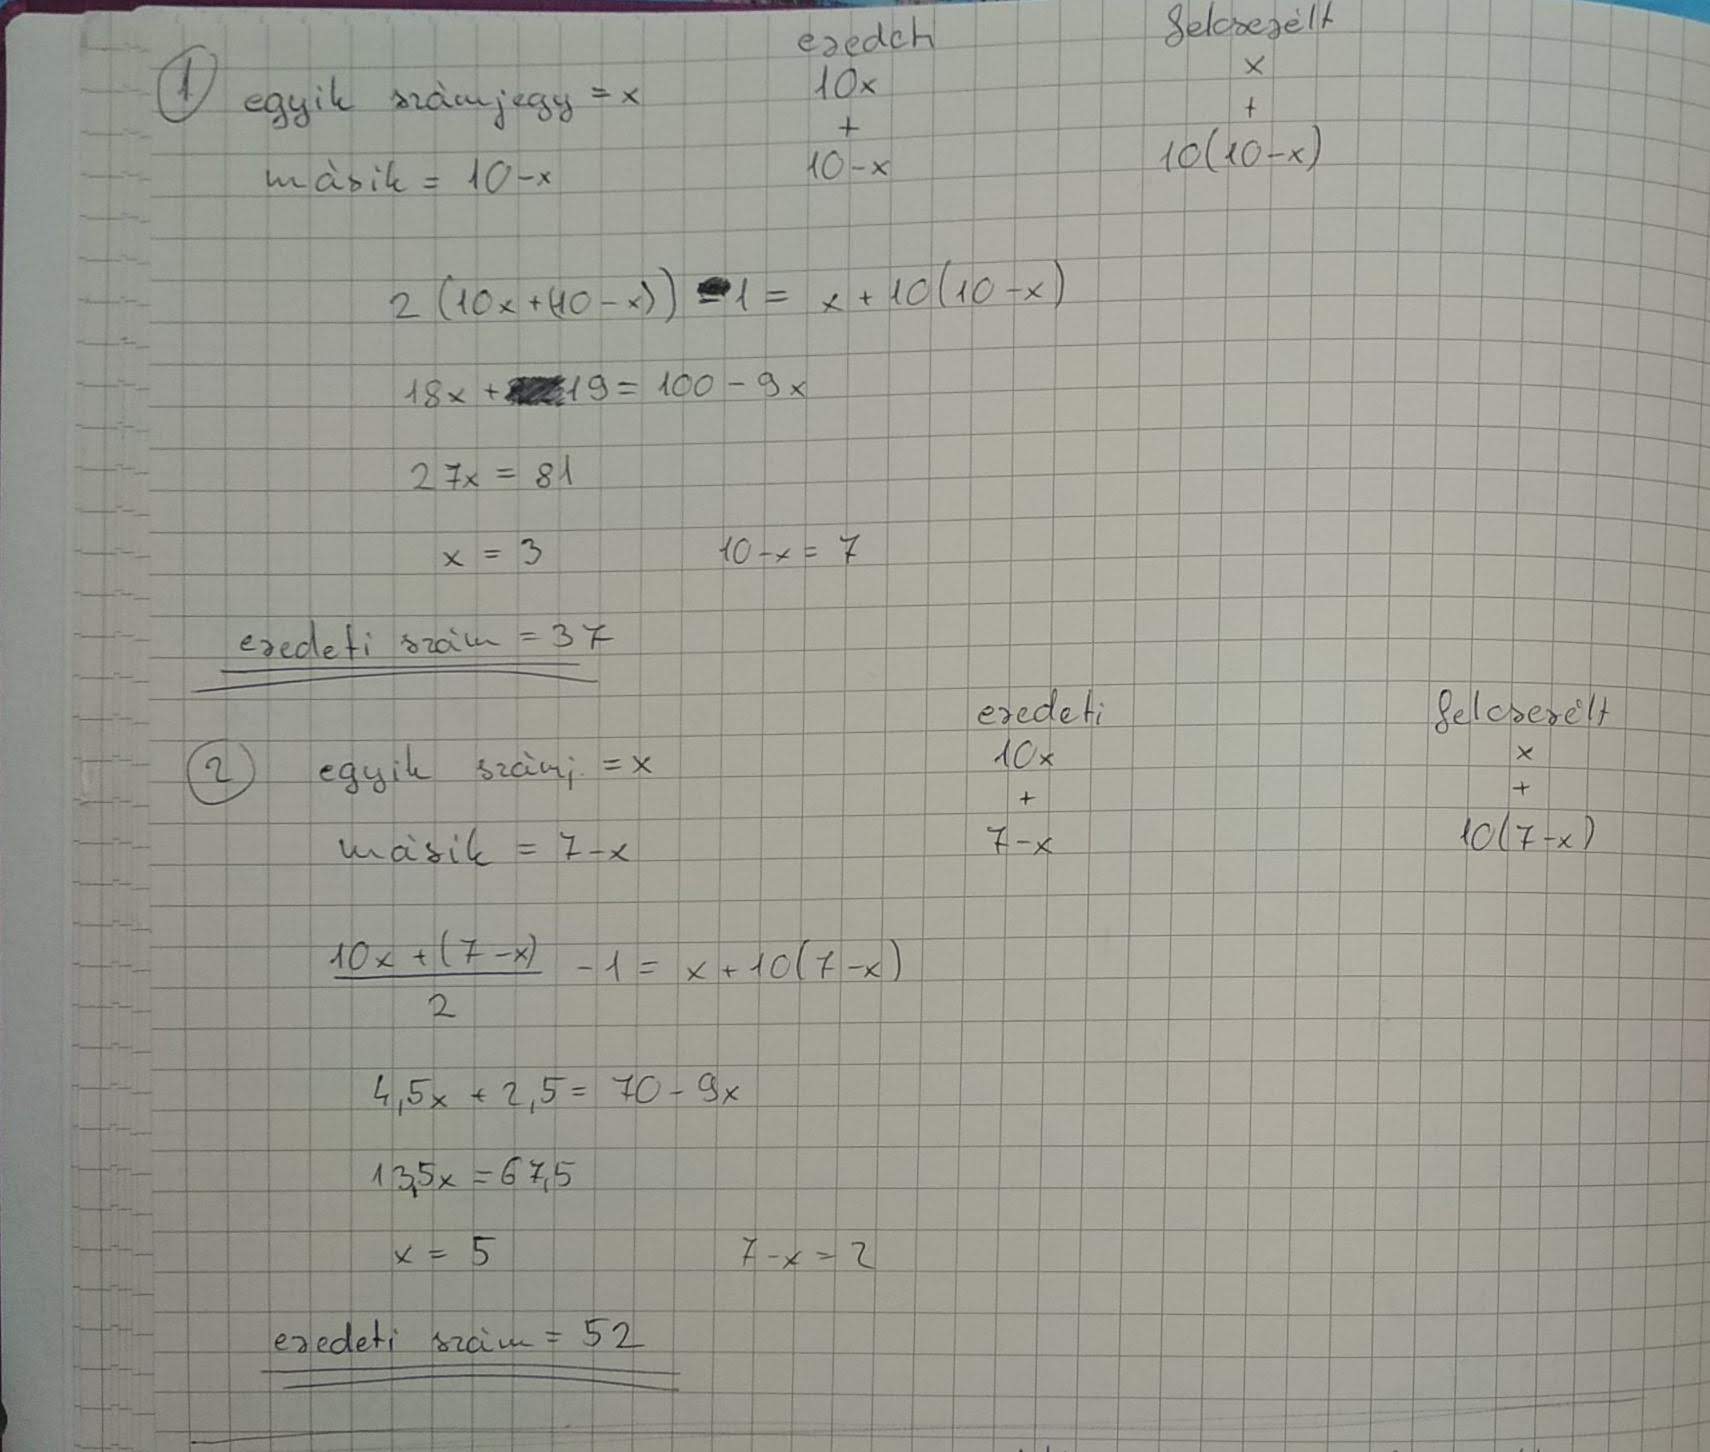 eredeti felcserélt
1 egyik számjegy = x 10x x
+ +
másik = 10-x 10-x 10(10-x)
2 (10x+(10-x)) -1 = x+10(10-x)
18x + 19 = 100 - 9x
27x = 81
x = 3 10-x = 7
eredeti szám = 37
eredeti felcserélt
2 egyik számj. = x 10x x
+ +
másik = 7-x 7-x 10(7-x)
10x+(7-x)/2 -1 = x+10(7-x)
4,5x + 2,5 = 70 - 9x
13,5x = 67,5
x = 5 7-x = 2
eredeti szám = 52